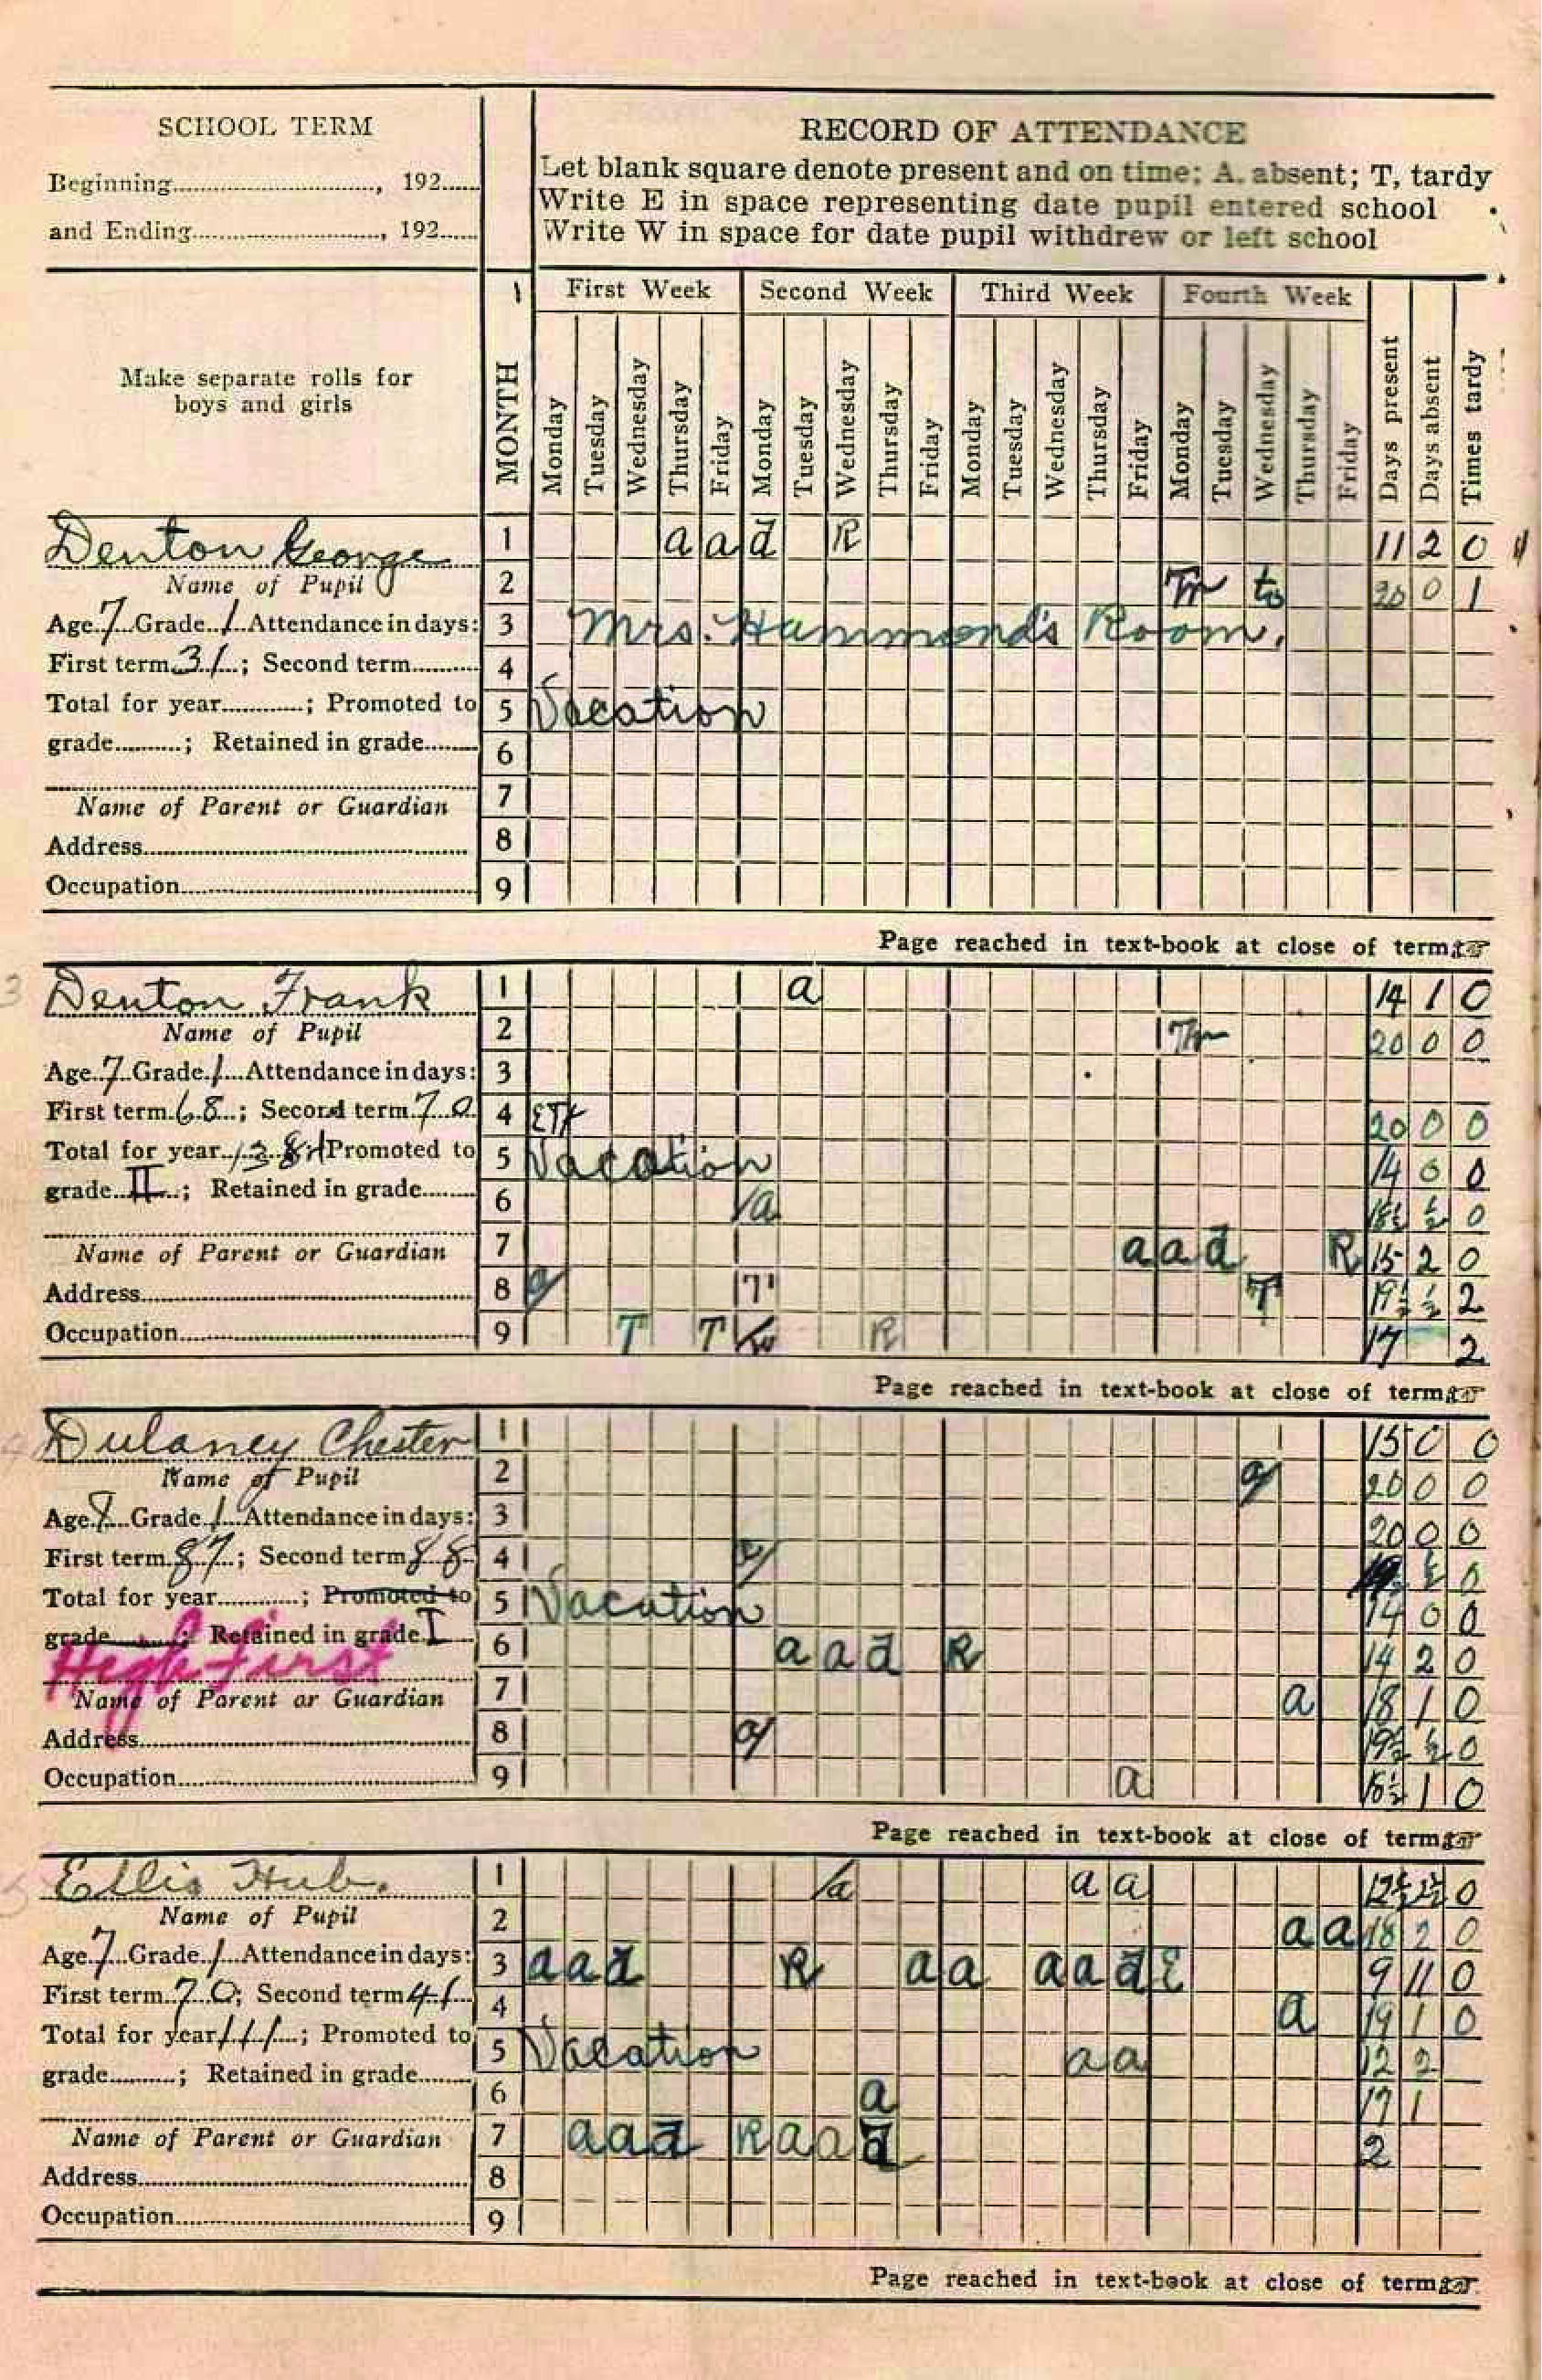 SCHOOL TERM
Beginning............................., 192......
and Ending..........................., 192......
RECORD OF ATTENDANCE
Let blank square denote present and on time; A, absent; T, tardy
Write E in space representing date pupil entered school
Write W in space for date pupil withdrew or left school
Make separate rolls for
boys and girls
MONTH
First Week Second Week Third Week Fourth Week
Monday Tuesday Wednesday Thursday Friday Monday Tuesday Wednesday Thursday Friday Monday Tuesday Wednesday Thursday Friday Monday Tuesday Wednesday Thursday Friday Days present Days absent Times tardy
Denton George
Name of Pupil
Age 7 Grade 1 Attendance in days:
First term 31; Second term..........
Total for year............; Promoted to
grade..........; Retained in grade........
Name of Parent or Guardian
Address
Occupation
1 a a d R 11 2 0
2 Tr to 20 0 1
3 Mrs. Hammond's Room.
4
5 Vacation
6
7
8
9
Page reached in text-book at close of term
3
Denton Frank
Name of Pupil
Age 7 Grade 1 Attendance in days:
First term 68; Second term 70
Total for year 138; Promoted to
grade II; Retained in grade........
Name of Parent or Guardian
Address
Occupation
1 a 14 1 0
2 Tr 20 0 0
3
4 20 0 0
5 Vacation 14 0 0
6 a ½ 0
7 a a d R 15 2 0
8 a T T 19½ ½ 2
9 T T R 17 2
Page reached in text-book at close of term
Dulaney Chester
Name of Pupil
Age 8 Grade 1 Attendance in days:
First term 87; Second term 88
Total for year............; Promoted to
grade..........; Retained in grade I
High First
Name of Parent or Guardian
Address
Occupation
1 15 0 0
2 a 20 0 0
3 20 0 0
4 a ½ 0
5 Vacation 14 0 0
6 a a d R 14 2 0
7 a 18 1 0
8 a 19½ ½ 0
9 a 1 0
Page reached in text-book at close of term
5
Ellis Hub.
Name of Pupil
Age 7 Grade 1 Attendance in days:
First term 70; Second term 41
Total for year 111; Promoted to
grade..........; Retained in grade........
Name of Parent or Guardian
Address
Occupation
1 a a a 12½ 2½ 0
2 a a 18 2 0
3 a a d R a a a a d E 9 11 0
4 a 19 1 0
5 Vacation a a 12 2
6 a 17 1
7 a a d R a a d 2
8
9
Page reached in text-book at close of term